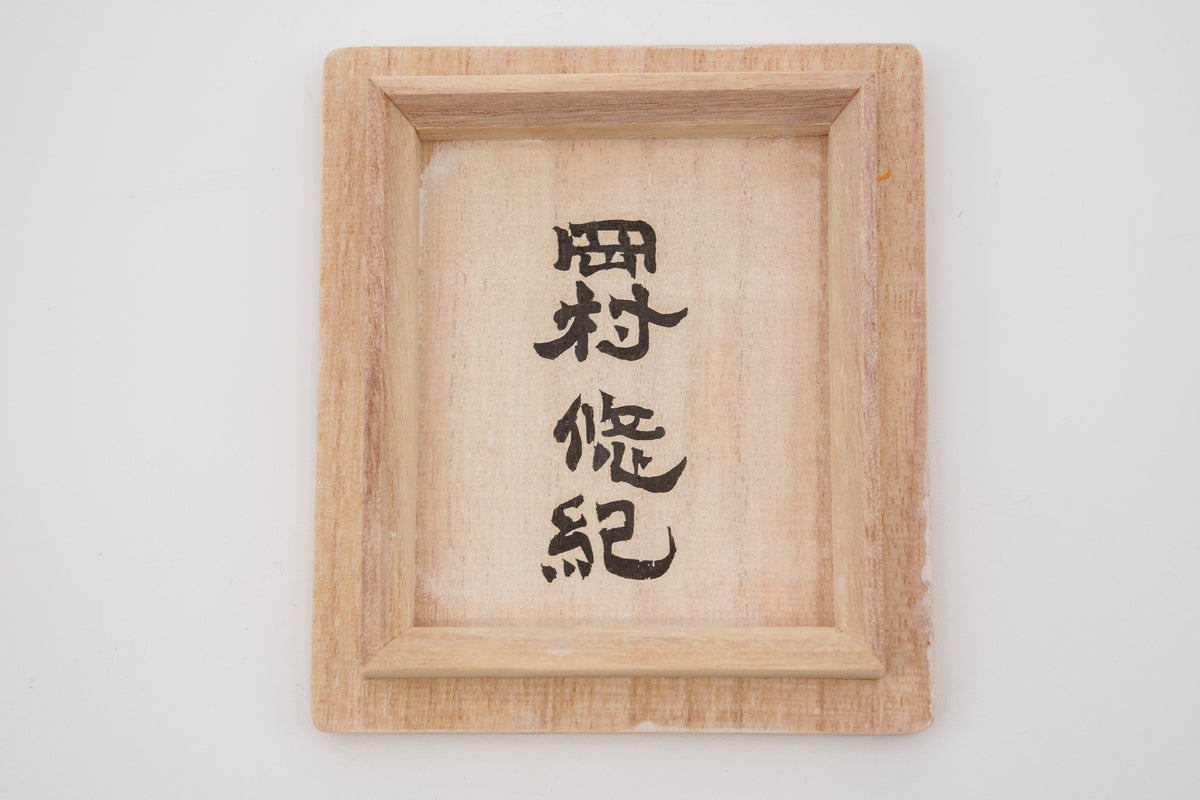 岡村 悠紀